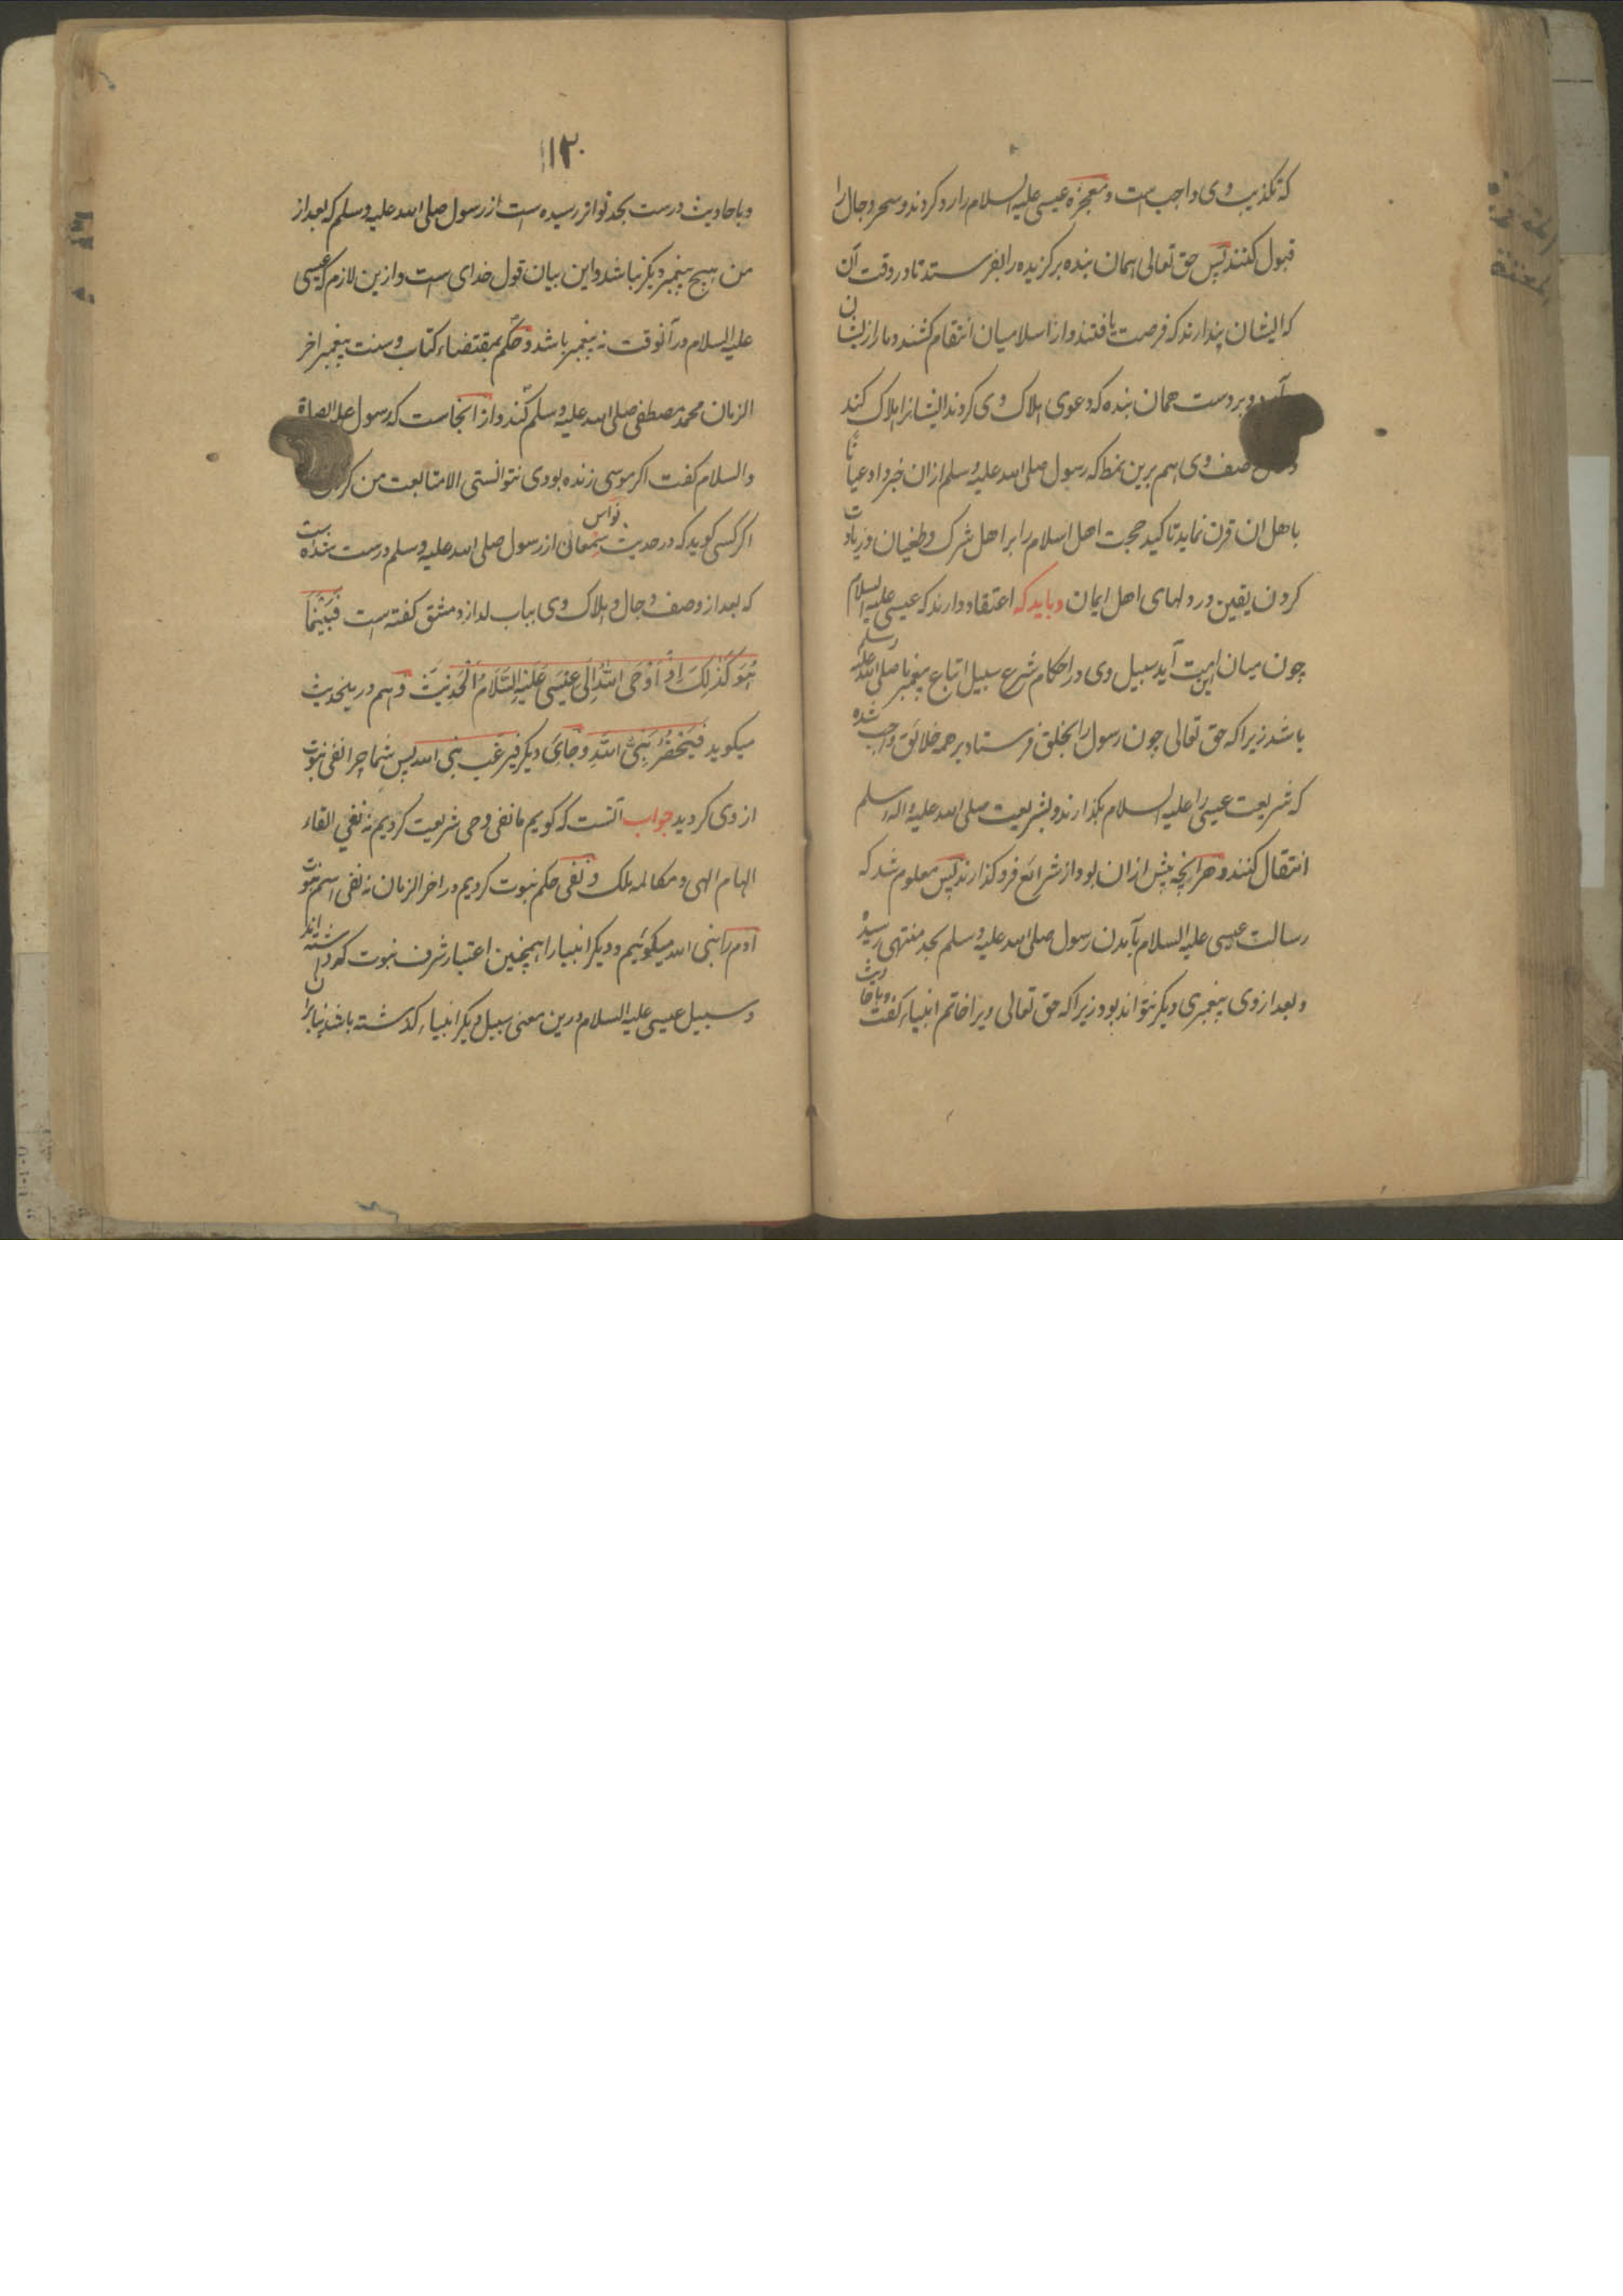 که تکذیب وی واجب است و معجزه عیسی علیه السلام را رد کردند و سحر دجال را
قبول کنند پس حق تعالی همان بنده برگزیده را بفرستد تا در وقت آن
که ایشان پندارند که فرصت یافتند و از اسلامیان انتقام کشند دمار از ایشان
و بر دست همان بنده که دعوی هلاک وی کردند ایشانرا هلاک کند
صف وی هم برین نمط که رسول صلی الله علیه وسلم ازان خبر داد عیانا
باهل ان قرن نماید تاکید حجت اهل اسلام را بر اهل شرک و طغیان و زیادت
کردن یقین در دلهای اهل ایمان و باید که اعتقاد دارند که عیسی علیه السلام
چون میان این امت آید سبیل وی در احکام شرع سبیل اتباع پیغمبر ما صلی الله علیه وسلم
باشد زیرا که حق تعالی چون رسول را بخلق فرستاد بر همه خلائق واجب شده
که شریعت عیسی را علیه السلام بگذارند و بشریعت صلی الله علیه واله وسلم
انتقال کنند و هرانچه پیش ازان بود از شرائع فرو گذارند پس معلوم شد که
رسالت عیسی علیه السلام بآمدن رسول صلی الله علیه وسلم بحد منتهی رسیده
و بعد از وی پیغمبری دیگر نتواند بود زیرا که حق تعالی ویرا خاتم انبیاء گفت
وباحادیث
۱۳۰
و باحادیث درست بحد تواتر رسیده است از رسول صلی الله علیه وسلم که بعد از
من هیچ پیغمبر دیگر نباشد و این بیان قول خدای است و ازین لازم که عیسی
علیه السلام در آنوقت نه پیغمبر باشد و حکم بمقتضاء کتاب و سنت پیغمبر اخر
الزمان محمد مصطفی صلی الله علیه وسلم کند و از انجاست که رسول علیه الصلاة
والسلام گفت اگر موسی زنده بودی نتوانستی الا متابعت من
اگر کسی گوید که در حدیث نواس سمعان از رسول صلی الله علیه وسلم درست شده است
که بعد از وصف دجال و هلاک وی بباب لد از دمشق گفته است فَبَيْنَمَا
هُوَ كَذٰلِكَ اِذْ اَوْحَى اللهُ اِلٰى عِيْسٰى عَلَيْهِ السَّلَامُ الْحَدِيْثَ و هم درینحدیث
میگوید فَيَحْضُرُ نَبِيُّ اللهِ و جای دیگر فیرغب نبی الله پس شما چرا نفی نبوت
از وی کردید جواب آنست که گویم ما نفی وحی شریعت کردیم نه نفی القاء
الهام الهی و مکالمه ملک و نفی حکم نبوت کردیم در اخر الزمان نه نفی اسم نبوت
ادم را نبی الله میگوئیم و دیگر انبیا را همچنین اعتبار شرف نبوت که داشته اند
و سبیل عیسی علیه السلام درین معنی سبیل دیگر انبیاء گذشته باشد بنا بران